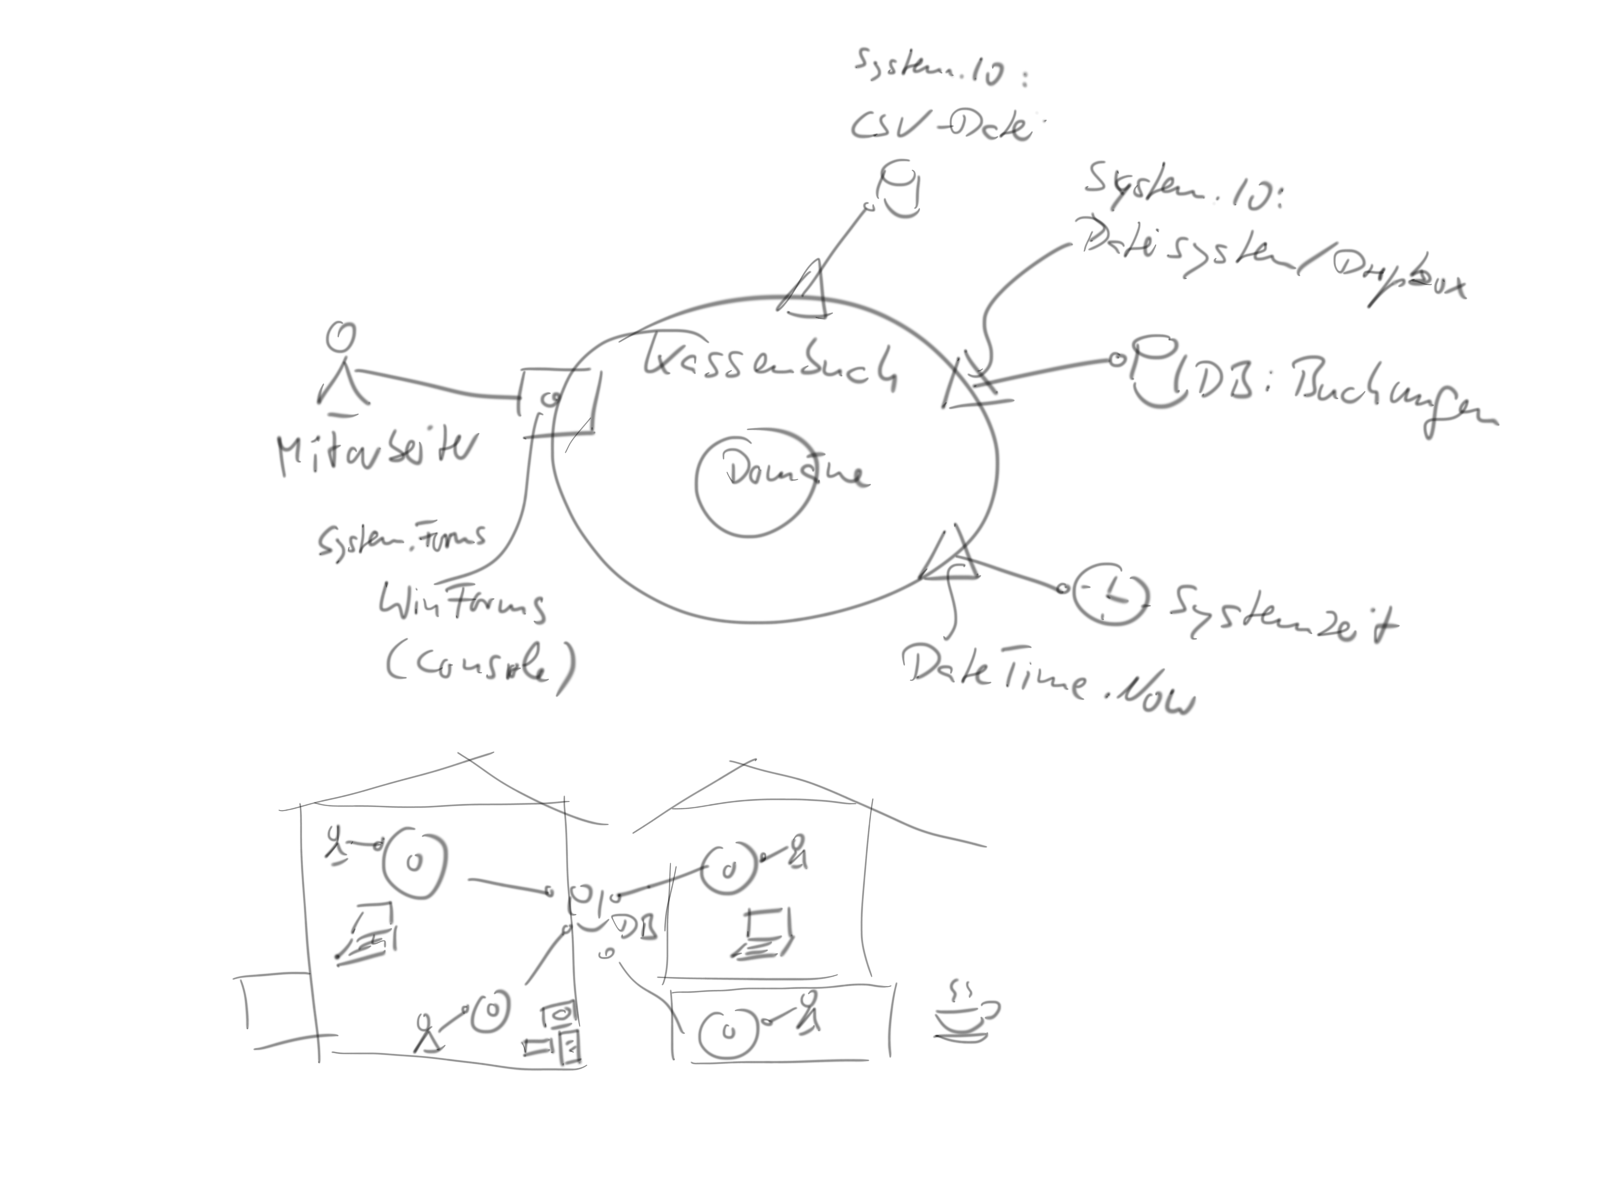 System.IO:
CSV-Datei
System.IO:
Dateisystem/Dropbox
Kassenbuch
DB: Buchungen
Mitarbeiter
Domäne
System.Forms
WinForms
(Console)
Systemzeit
DateTime.Now
DB